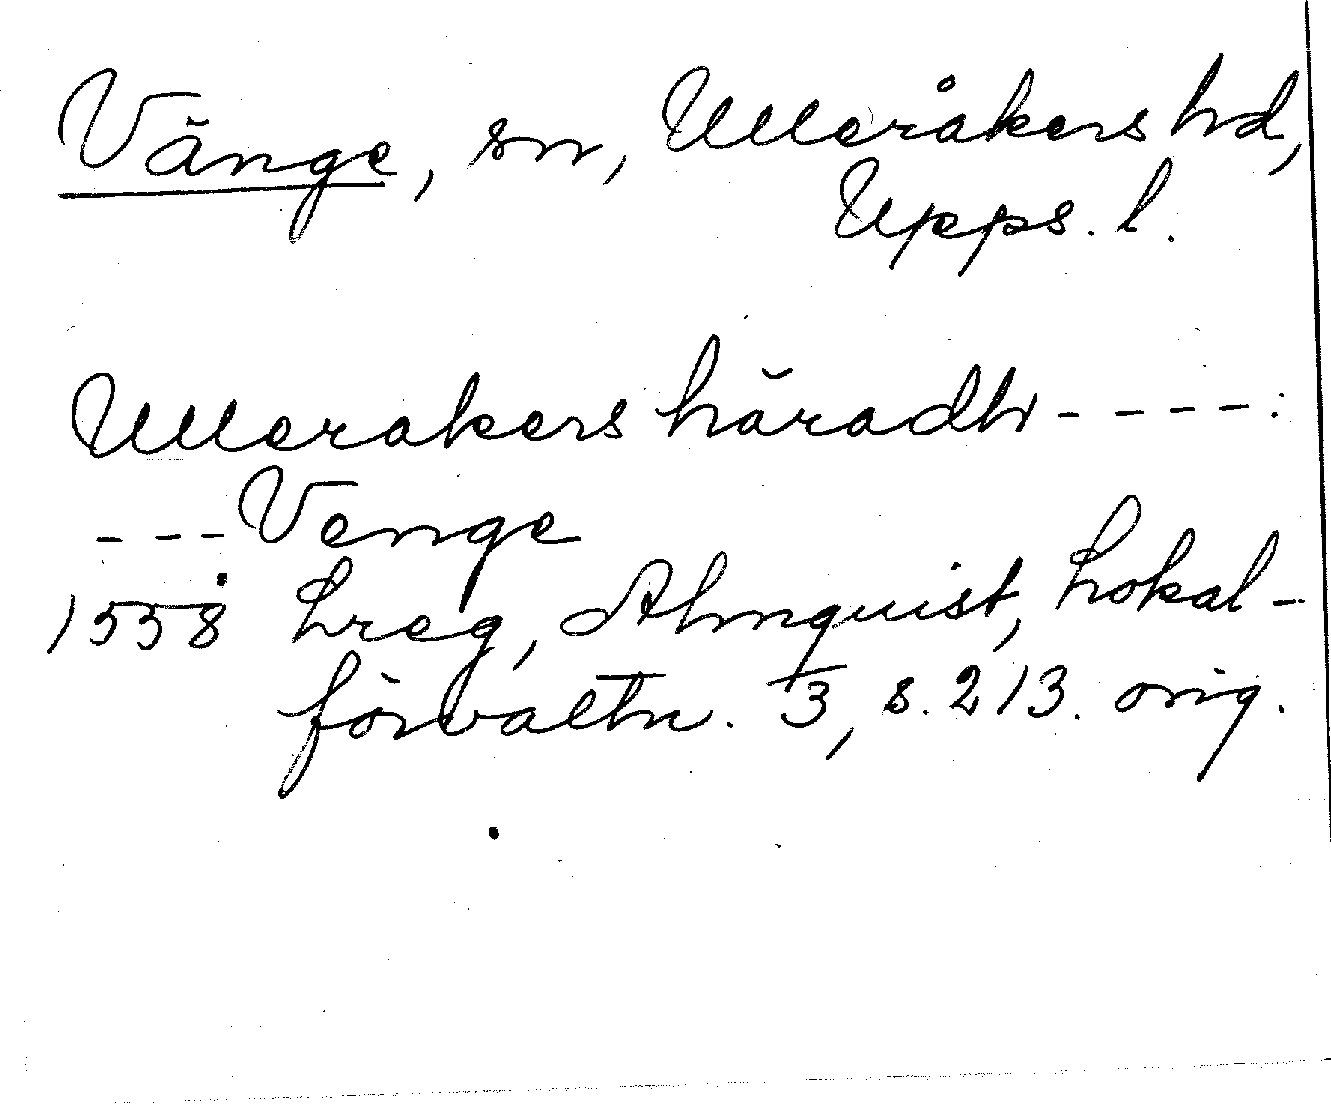 Vänge, sn, Ulleråkers hd,
Upps. l.
Ullerakers häradh ----:
--- Venge
1558 Lreg, Almquist, Lokal-
förvaltn. 3, s. 213. orig.